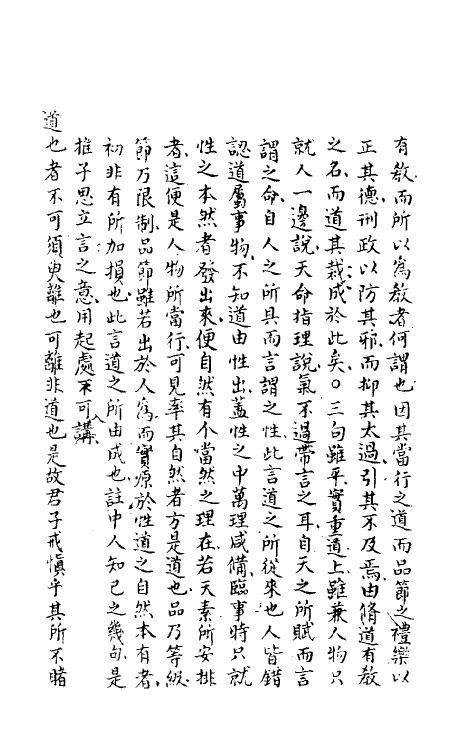 有教而所以爲教者何謂也因其當行之道而品節之禮樂以
正其德刑政以防其邪而抑其太過引其不及焉由脩道有教
之名而道其裁成於此矣○三句雖平實重道上雖兼人物只
就人一邊說天命指理說氣不過帶言之耳自天之所賦而言
謂之命自人之所具而言謂之性此言道之所從來也人皆錯
認道屬事物不知道由性出蓋性之中萬理咸備臨事時只就
性之本然者發出來便自然有个當然之理在若天素所安排
者這便是人物所當行可見率其自然者方是道也品乃等級
節乃限制品節雖若出於人爲而實原於性道之自然本有者
初非有所加損也此言道之所由成也註中人知已之幾句是
推子思立言之意用起處不可入講
道也者不可須臾離也可離非道也是故君子戒慎乎其所不睹